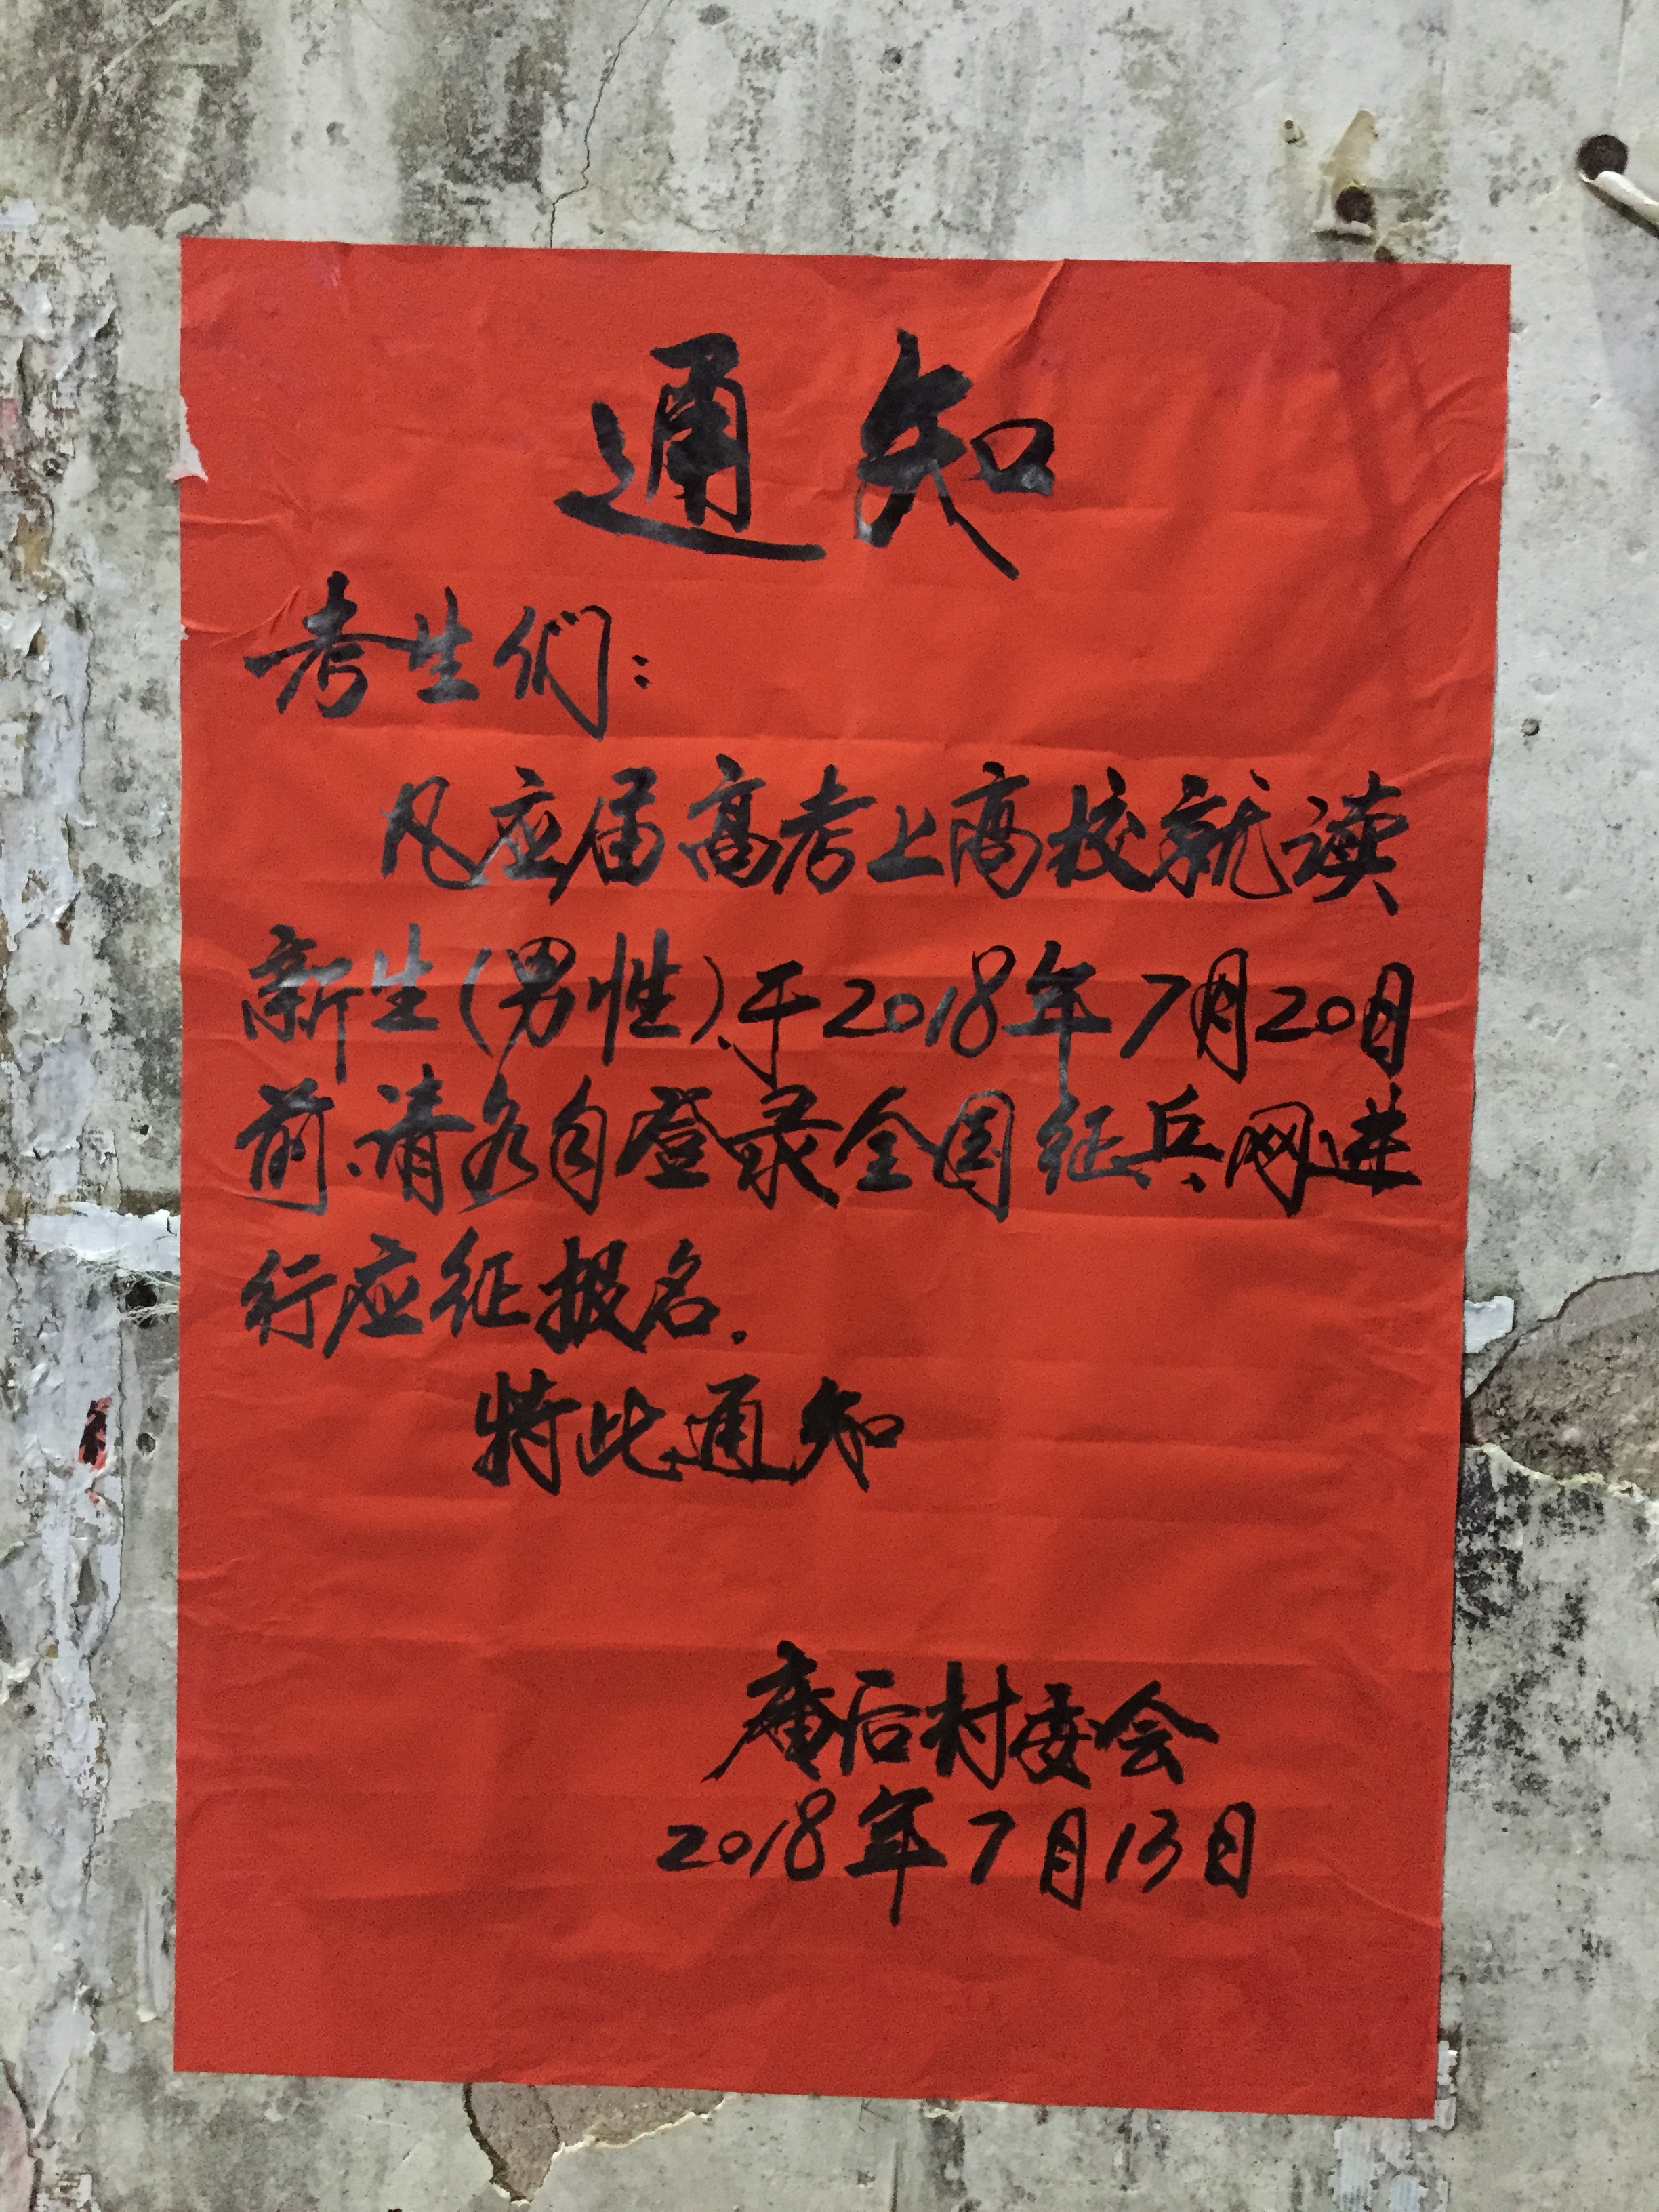 通知
考生们:
凡应届高考上高校就读
新生(男性)、于2018年7月20日
前、请各自登录全国征兵网进
行应征报名.
特此通知
庵后村委会
2018年7月13日